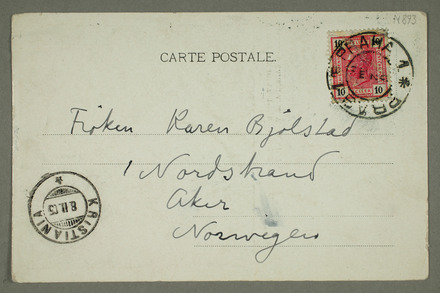 11893
CARTE POSTALE.
10 10
10 10
PRAHA 1 * PRAG
Fröken Karen Bjölstad
1 Nordstrand
Aker
Norwegen
KRISTIANIA
8 II 05